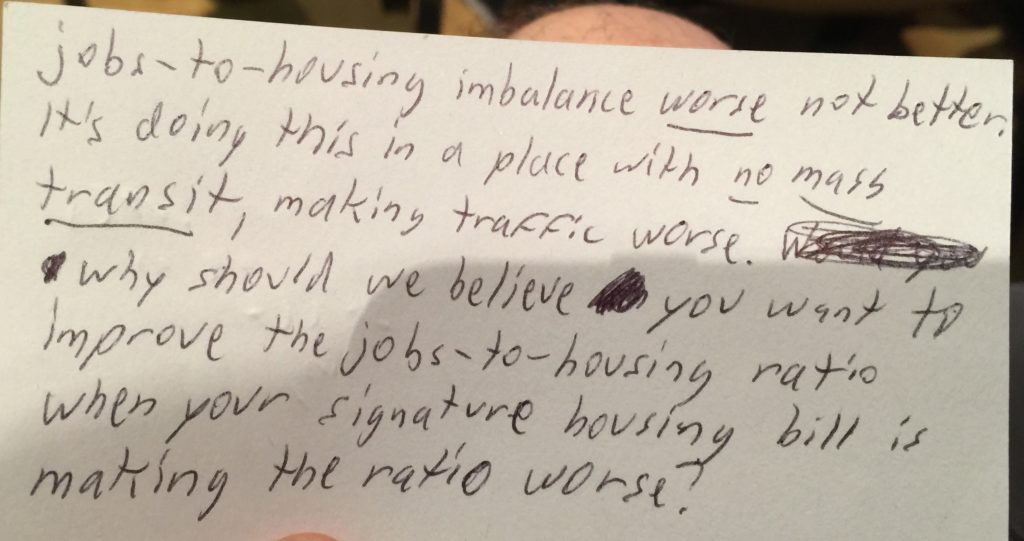 jobs-to-housing imbalance worse not better.
It's doing this in a place with no mass
transit, making traffic worse.
why should we believe you want to
improve the jobs-to-housing ratio
when your signature housing bill is
making the ratio worse?